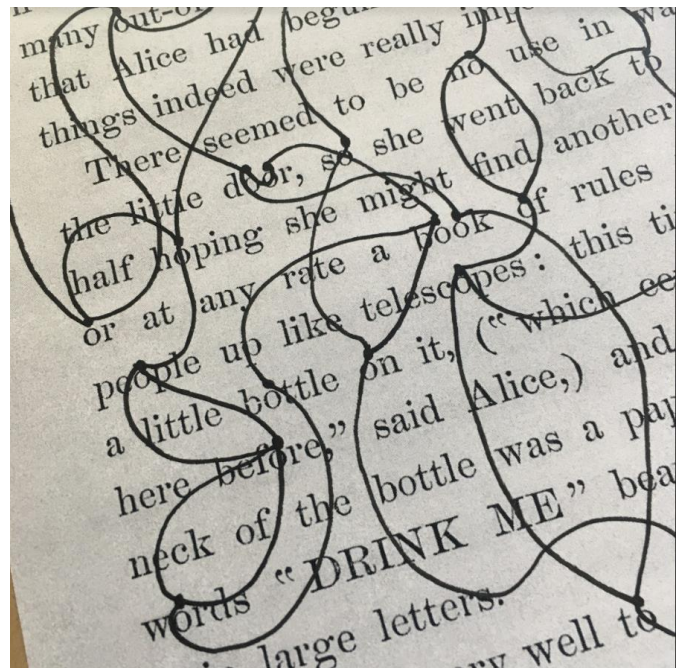 many out-of
that Alice had begun
things indeed were really
There seemed to be no use in
the little door, so she went back to
half hoping she might find another
or at any rate a book of rules
people up like telescopes: this
a little bottle on it, (“which
here before,” said Alice,) and
neck of the bottle was a
words “DRINK ME”
large letters.
well to